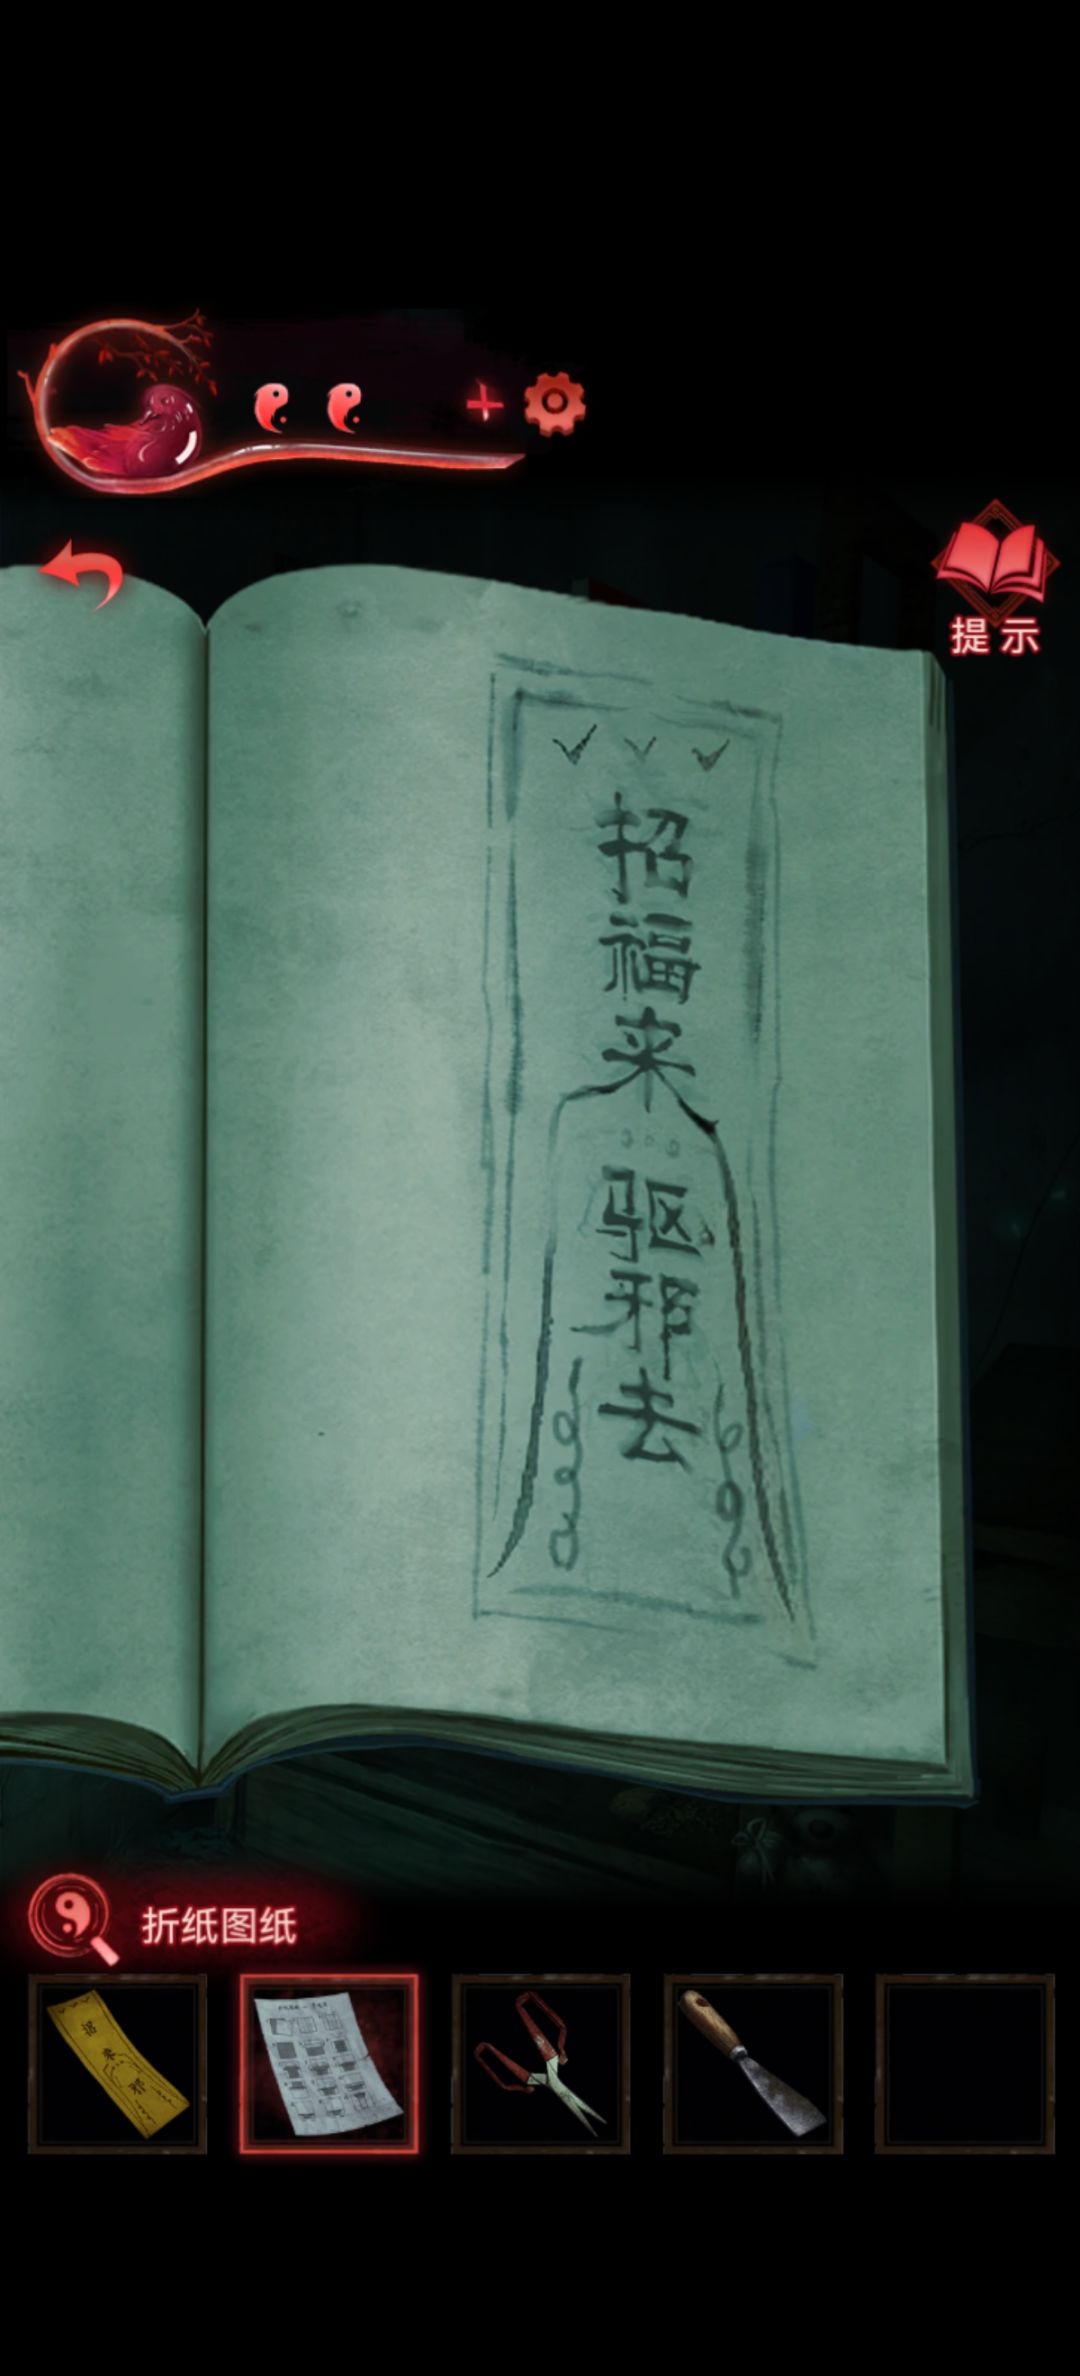 提示
招福来
驱邪去
折纸图纸
招
来
邪